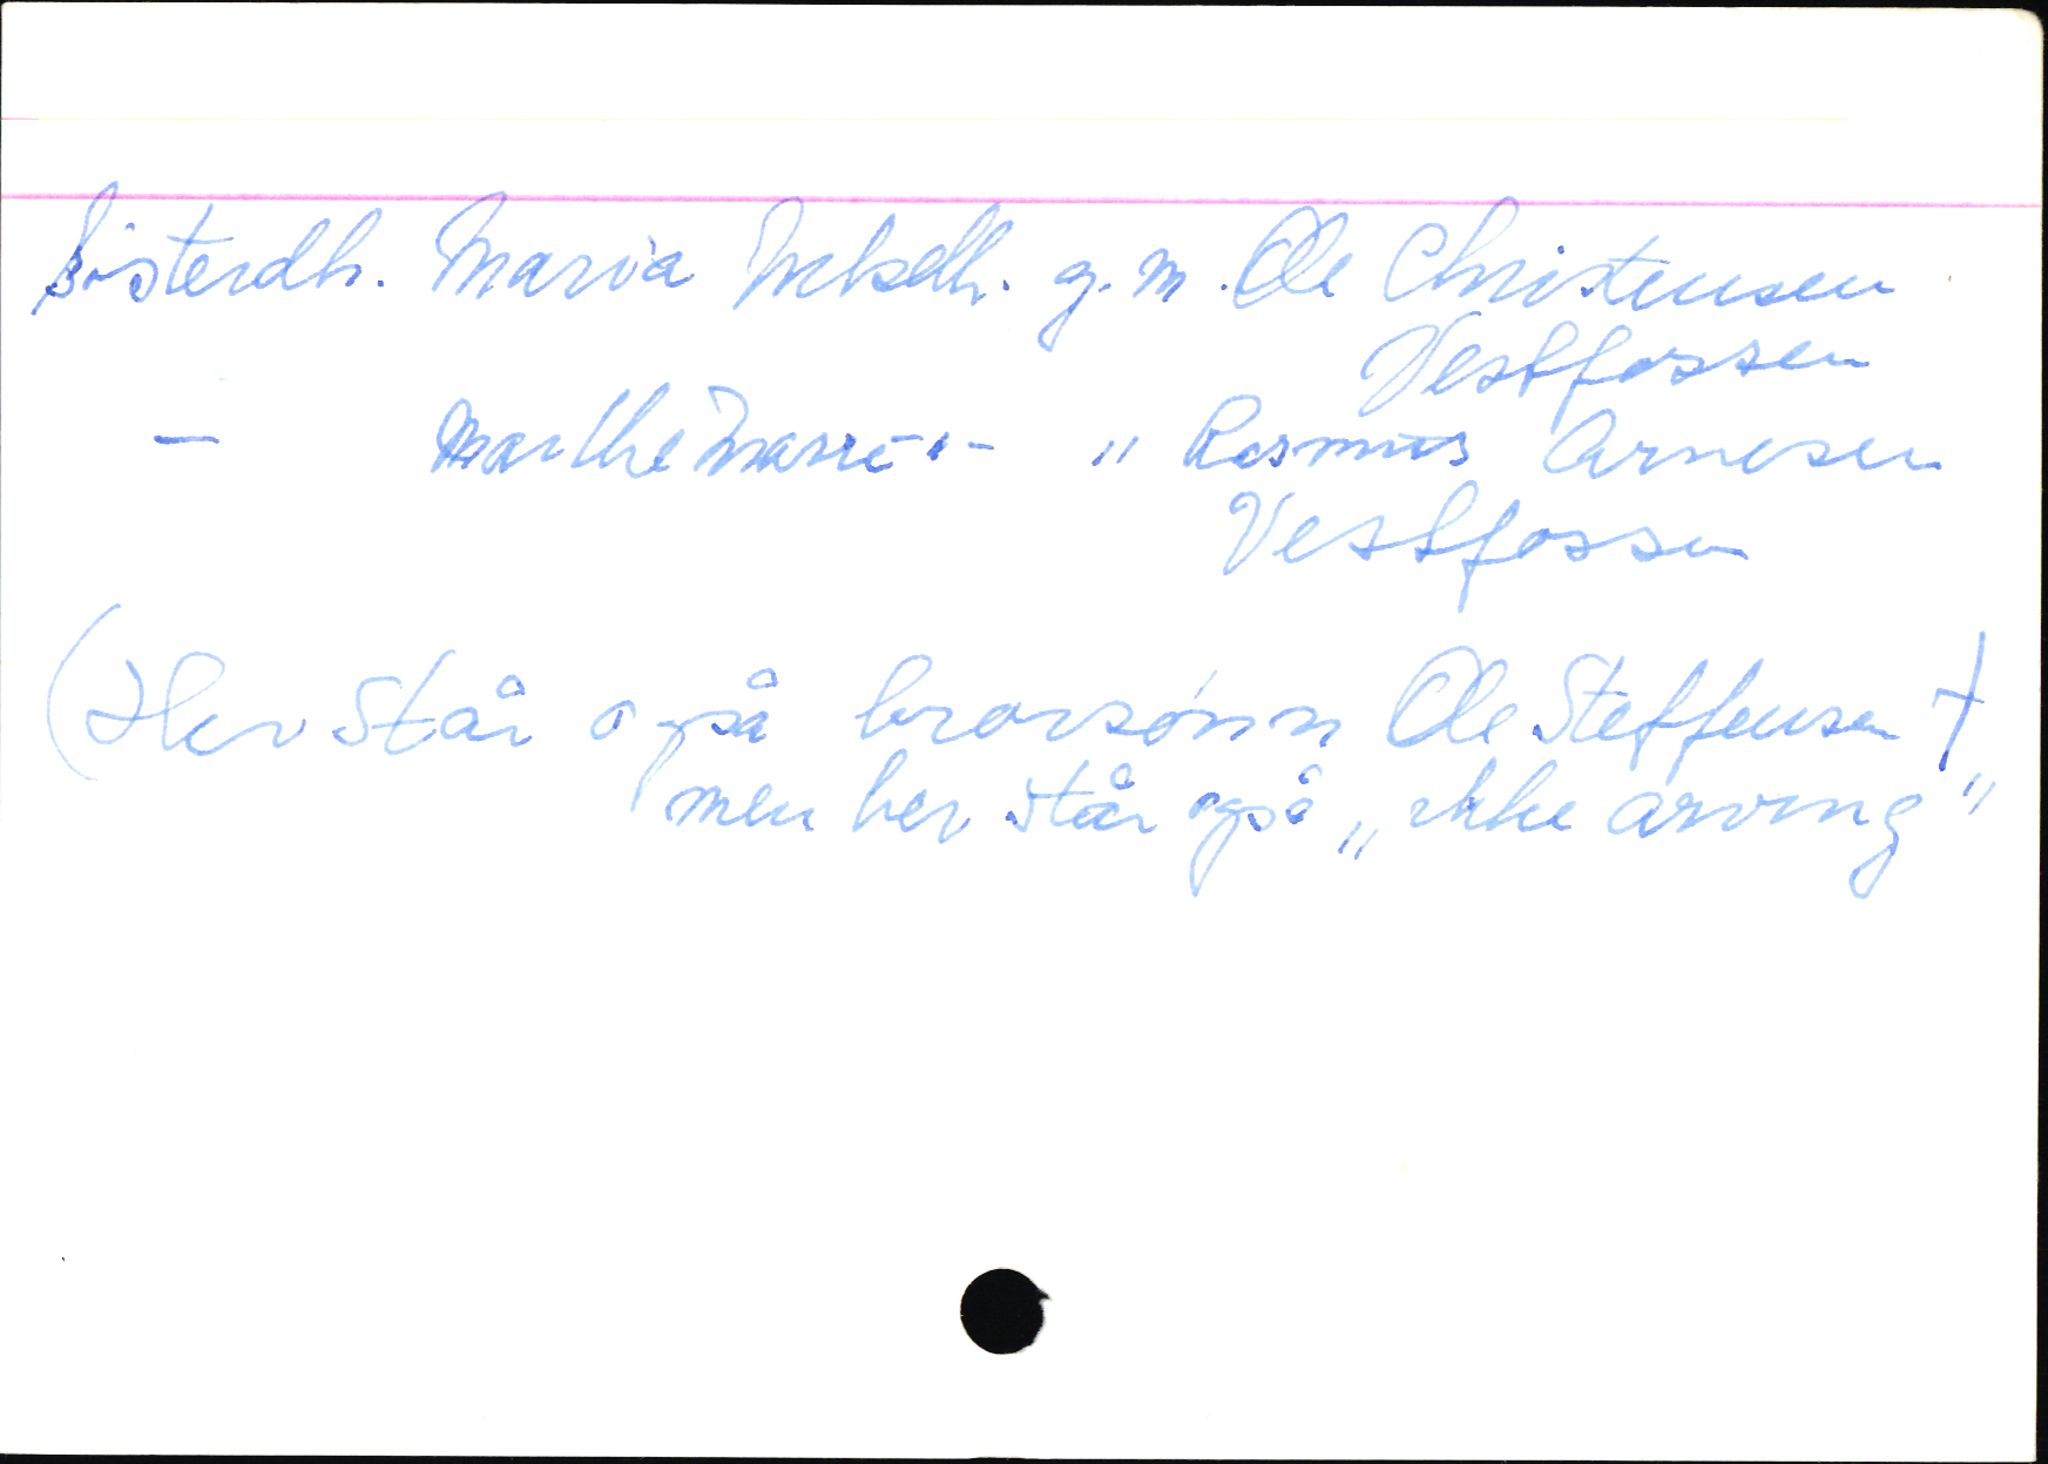 Søsterdtr. Maria Nilsdtr. g.m. Ole Christensen
Vestfossen
— Marthe Marie -"- " Rasmus Arnesen
Vestfossen
(Her står også brorsønn Ole Steffensen †
men her står også „ikke arving"